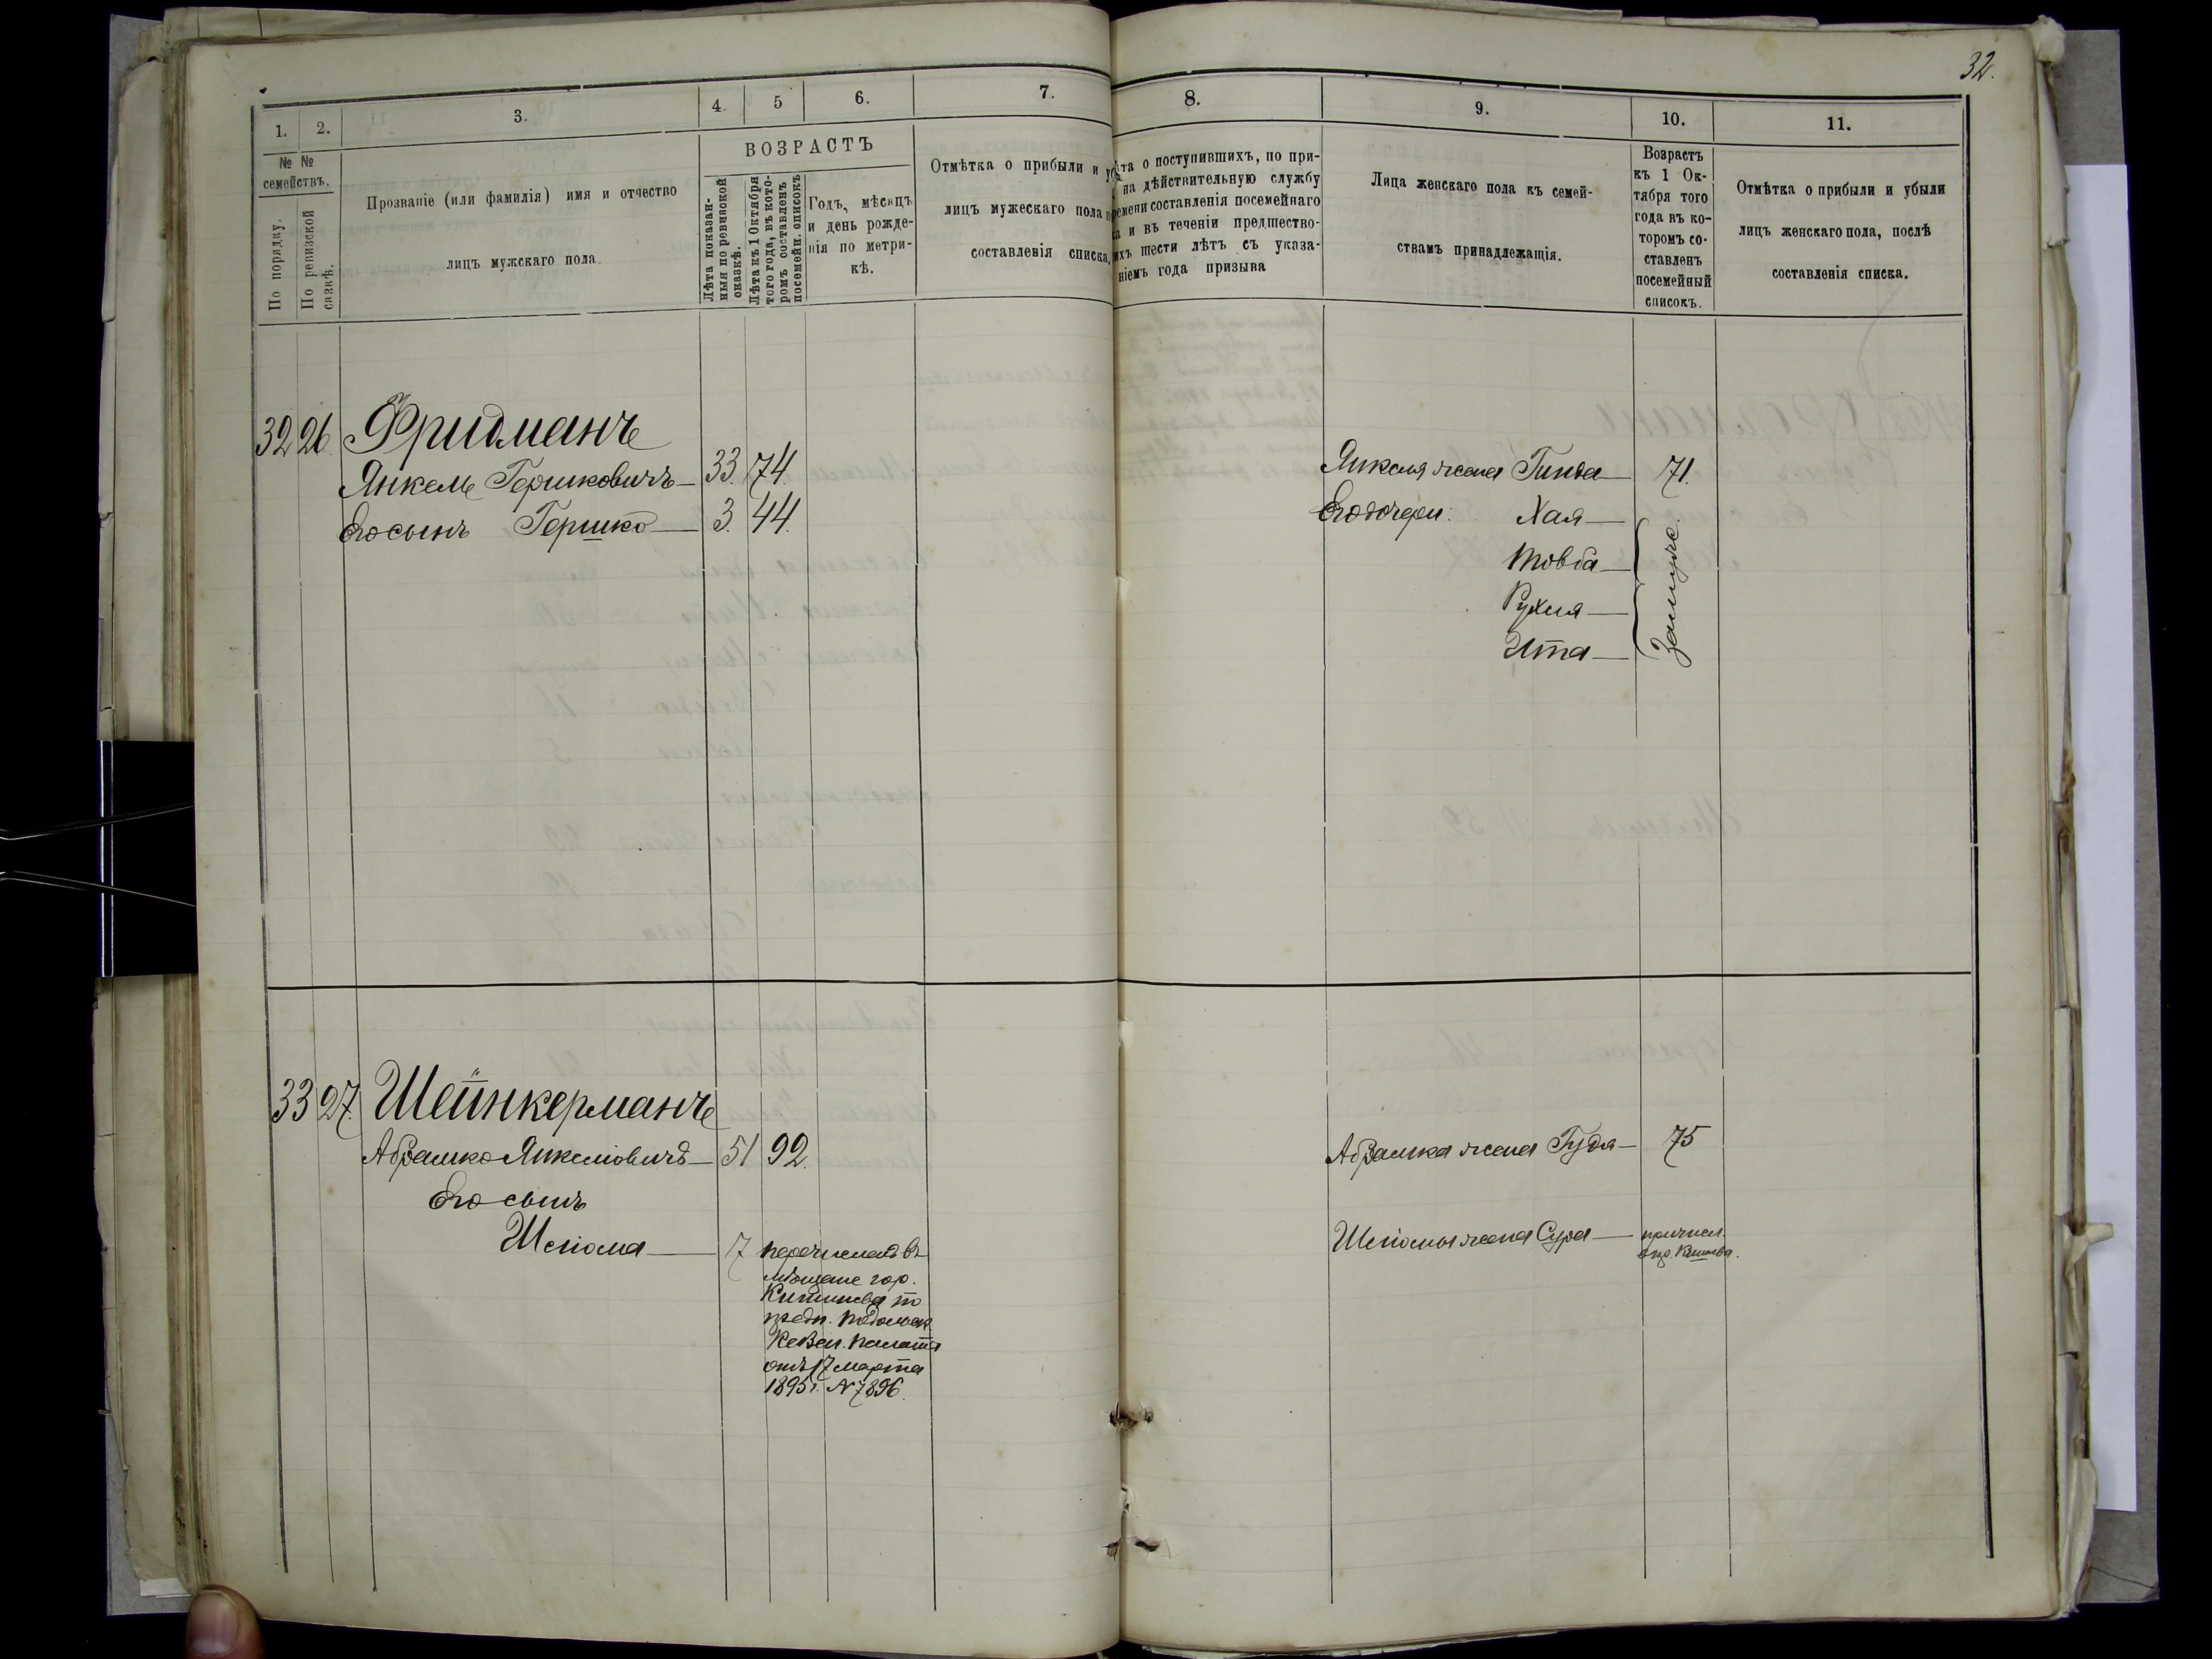 32.
1. 2. 3. 4. 5 6. 7. 8. 9. 10. 11.
№ №
семействъ.
По порядку.
По ревизской
сказкѣ.
Прозваніе (или фамилія) имя и отчество
лицъ мужскаго пола.
ВОЗРАСТЪ
Лѣта показан-
ныя по ревизской
сказкѣ.
Лѣта къ 1 Октября
того года, въ кото-
ромъ составленъ
посемейн. списокъ
Годъ, мѣсяцъ
и день рожде-
нія по метри-
кѣ.
Отмѣтка о прибыли и
лицъ мужескаго пола
составленія списка.
та о поступившихъ, по при-
на дѣйствительную службу
ремени составленія посемейнаго
и въ теченіи предшество-
ихъ шести лѣтъ съ указа-
ніемъ года призыва
Лица женскаго пола къ семей-
ствамъ принадлежащія.
Возрастъ
къ 1 Ок-
тября того
года въ ко-
торомъ со-
ставленъ
посемейный
списокъ.
Отмѣтка о прибыли и убыли
лицъ женскаго пола, послѣ
составленія списка.
32 26. Фридманъ
Янкель Гершковичъ — 33. 74.
Его сынъ Гершко — 3. 44.
Янкеля жена Гинда — 71.
Его дочери: Хая —
Товба —
Рухля —
Ита —
Замужс.
33 27. Шейнкерманъ
Абрамко Янкеліовичъ — 51 92.
Его сынъ
Шліома — 7 перечисленъ въ
мѣщане гор.
Кишинева по
предп. Подольск.
Казен. палаты
отъ 17 марта
1895 г. № 7896.
Абрамка жена Гудя — 75
Шліомы жена Сура — причисл.
въ гр. Кишнева.